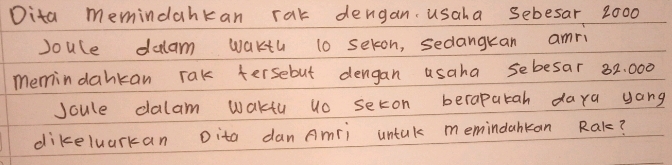 Dita memindahkan rak dengan. usaha sebesar 2000
Joule dalam waktu 10 sekon, sedangkan amri
memindahkan rak tersebut dengan usaha sebesar 32.000
Joule dalam waktu 40 sekon berapakah daya yang
dikeluarkan Dita dan Amri untuk memindahkan Rak?